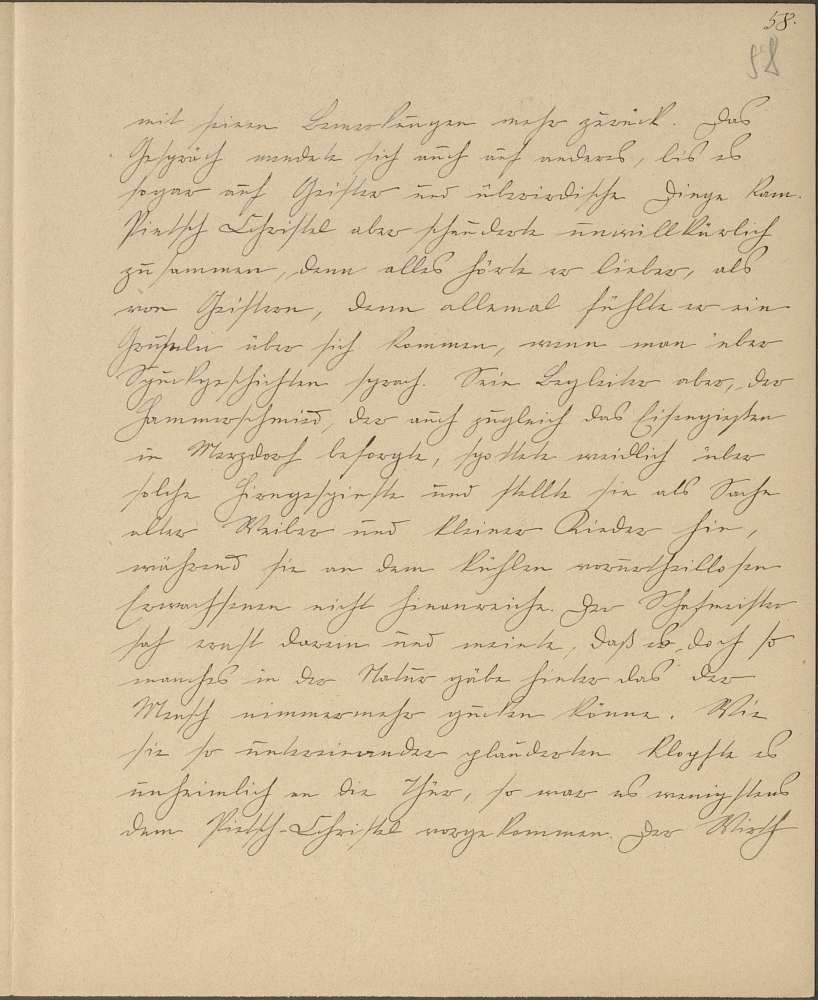 58.
58
mit seinen Bemerkungen mehr zurück. Das
Gespräch wendete sich auch auf anderes, bis es
sogar auf Geister und überirdische Dinge kam.
Pietsch Christel aber schauderte unwillkürlich
zusammen, denn alles hörte er lieber, als
von Geistern, denn allemal fühlte er ein
Gruseln über sich kommen, wenn man über
Spuckgeschichten sprach. Sein Begleiter aber, der
Hammerschmied, der auch zugleich das Eisengießen
in Merzdorf besorgte, spottete weidlich über
solche Hirngespinste und stellte sie als Sache
alter Weiber und kleiner Kinder hin,
während sie an dem kühlen vorurtheillosen
Erwachsenen nicht hinanreiche. Der Schafmeister
sah ernst darein und meinte, daß es doch so
manches in der Natur gäbe hinter das der
Mensch nimmermehr gucken könne. Wie
sie so untereinander plauderten klopfte es
unheimlich an die Thür, so war es wenigstens
dem Pietsch-Christel vorgekommen. Der Wirth